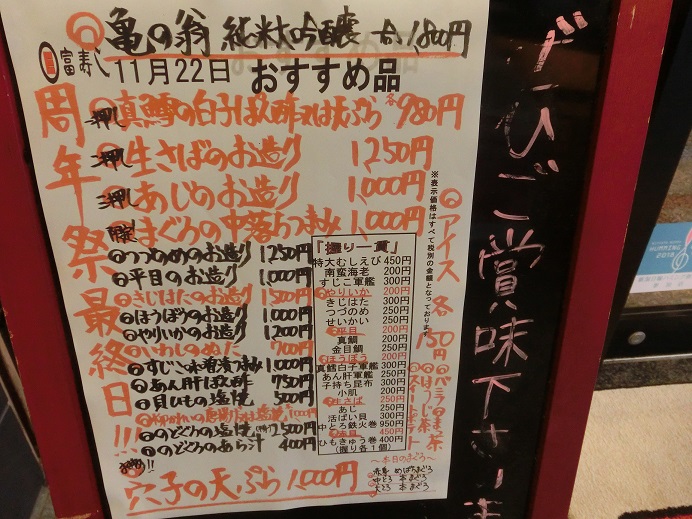 亀の翁 純米大吟醸 一合 1,800円
富寿し 11月22日 おすすめ品
周年祭最終日!!!
押し 真鱈の白子ぽん酢又は天ぷら 各980円
押し 生さばのお造り 1,250円
押し あじのお造り 1,000円
限定 まぐろの中落ちつまみ 1,000円
つづのめのお造り 1,250円
平目のお造り 1,200円
きじはたのお造り 1,500円
ほうぼうのお造り 1,000円
やりいかのお造り 1,200円
いわしのぬた 700円
すじこ味噌漬つまみ 1,000円
あん肝ぽん酢 750円
貝ひもの塩焼 500円
のどぐろの塩焼 2500円
のどぐろのあら汁 400円
穴子の天ぷら 1,000円
『握り一貫』
特大むしえび 450円
南蛮海老 200円
すじこ軍艦 300円
やりいか 200円
きじはた 300円
つづのめ 250円
せいかい 250円
平目 200円
真鯛 200円
金目鯛 250円
ほうぼう 200円
真鱈白子軍艦 300円
あん肝軍艦 300円
子持ち昆布 300円
小肌 200円
生さば 250円
あじ 250円
活ばい貝 300円
中とろ鉄火巻 950円
赤貝 450円
ひもきゅう巻 400円
(握り各1個)
※表示価格はすべて税別の金額となっております
アイス 各150円
バニラ
ごま
抹茶
ほうじ茶
スイートポテト
〜本日のまぐろ〜
赤身 めばちまぐろ
中とろ 本まぐろ
大とろ 本まぐろ
ぜひご賞味下さいま